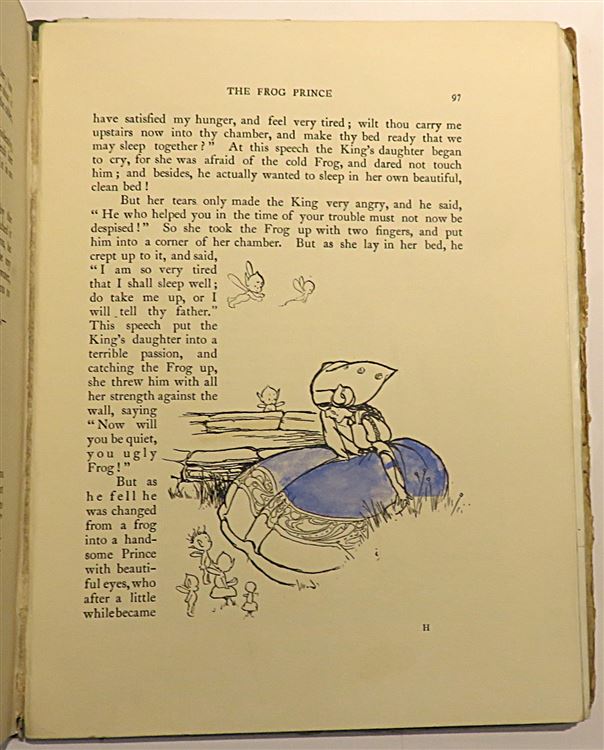 THE FROG PRINCE
97
have satisfied my hunger, and feel very tired; wilt thou carry me
upstairs now into thy chamber, and make thy bed ready that we
may sleep together?" At this speech the King's daughter began
to cry, for she was afraid of the cold Frog, and dared not touch
him; and besides, he actually wanted to sleep in her own beautiful,
clean bed!
But her tears only made the King very angry, and he said,
"He who helped you in the time of your trouble must not now be
despised!" So she took the Frog up with two fingers, and put
him into a corner of her chamber. But as she lay in her bed, he
crept up to it, and said,
"I am so very tired
that I shall sleep well;
do take me up, or I
will tell thy father."
This speech put the
King's daughter into a
terrible passion, and
catching the Frog up,
she threw him with all
her strength against the
wall, saying
"Now will
you be quiet,
you ugly
Frog!"
But as
he fell he
was changed
from a frog
into a hand-
some Prince
with beauti-
ful eyes, who
after a little
while became
H